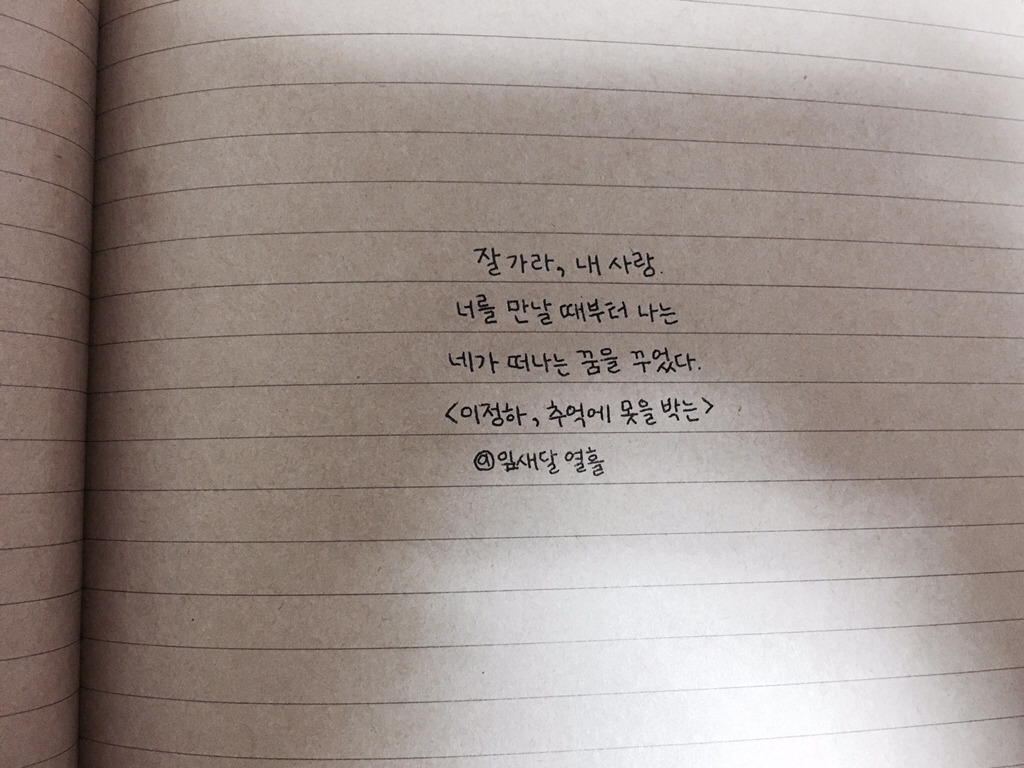 잘 가라, 내 사랑.
너를 만날 때부터 나는
네가 떠나는 꿈을 꾸었다.
<이정하, 추억에 못을 박는>
@잎새달 열흘